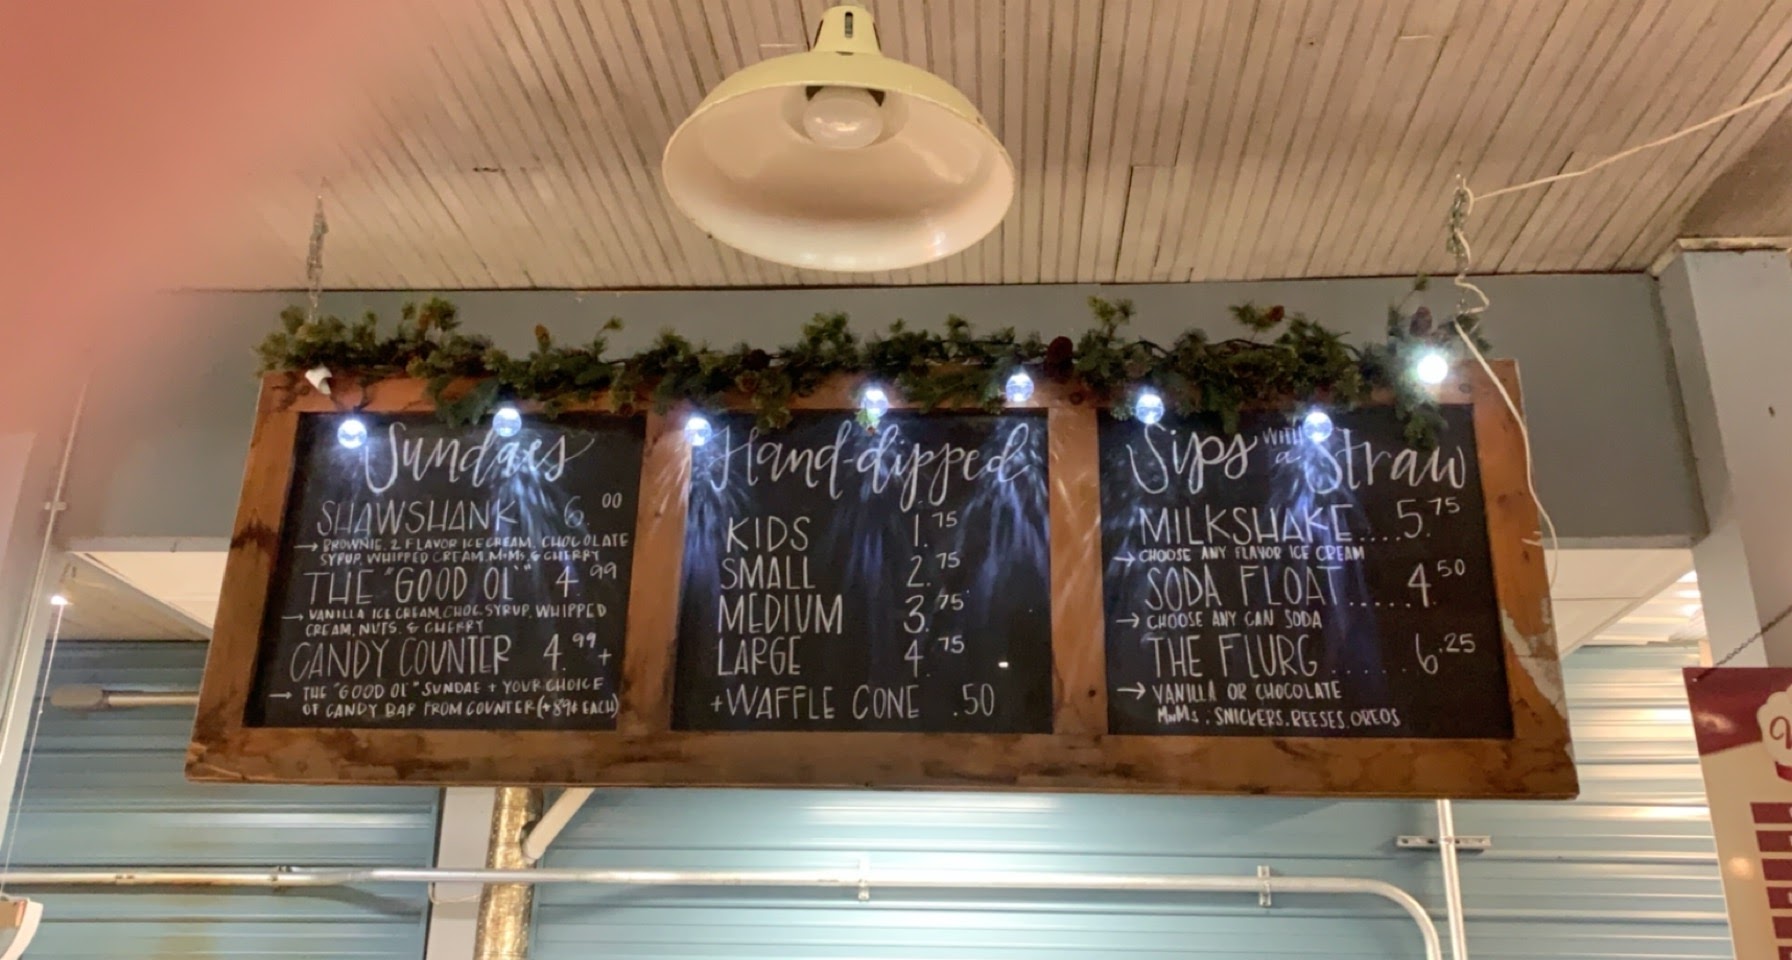 Sundaes
SHAWSHANK 6.00
→ BROWNIE, 2 FLAVOR ICE CREAM, CHOCOLATE
SYRUP, WHIPPED CREAM, M•Ms, & CHERRY
THE "GOOD OL'" 4.99
→ VANILLA ICE CREAM, CHOC. SYRUP, WHIPPED
CREAM, NUTS, & CHERRY
CANDY COUNTER 4.99 +
→ THE "GOOD OL'" SUNDAE + YOUR CHOICE
OF CANDY BAR FROM COUNTER (+89¢ EACH)
Hand-dipped
KIDS 1.75
SMALL 2.75
MEDIUM 3.75
LARGE 4.75
+WAFFLE CONE .50
Sips with a Straw
MILKSHAKE....5.75
→ CHOOSE ANY FLAVOR ICE CREAM
SODA FLOAT.....4.50
→ CHOOSE ANY CAN SODA
THE FLURG.....6.25
→ VANILLA OR CHOCOLATE
MnMs, SNICKERS, REESES, OREOS